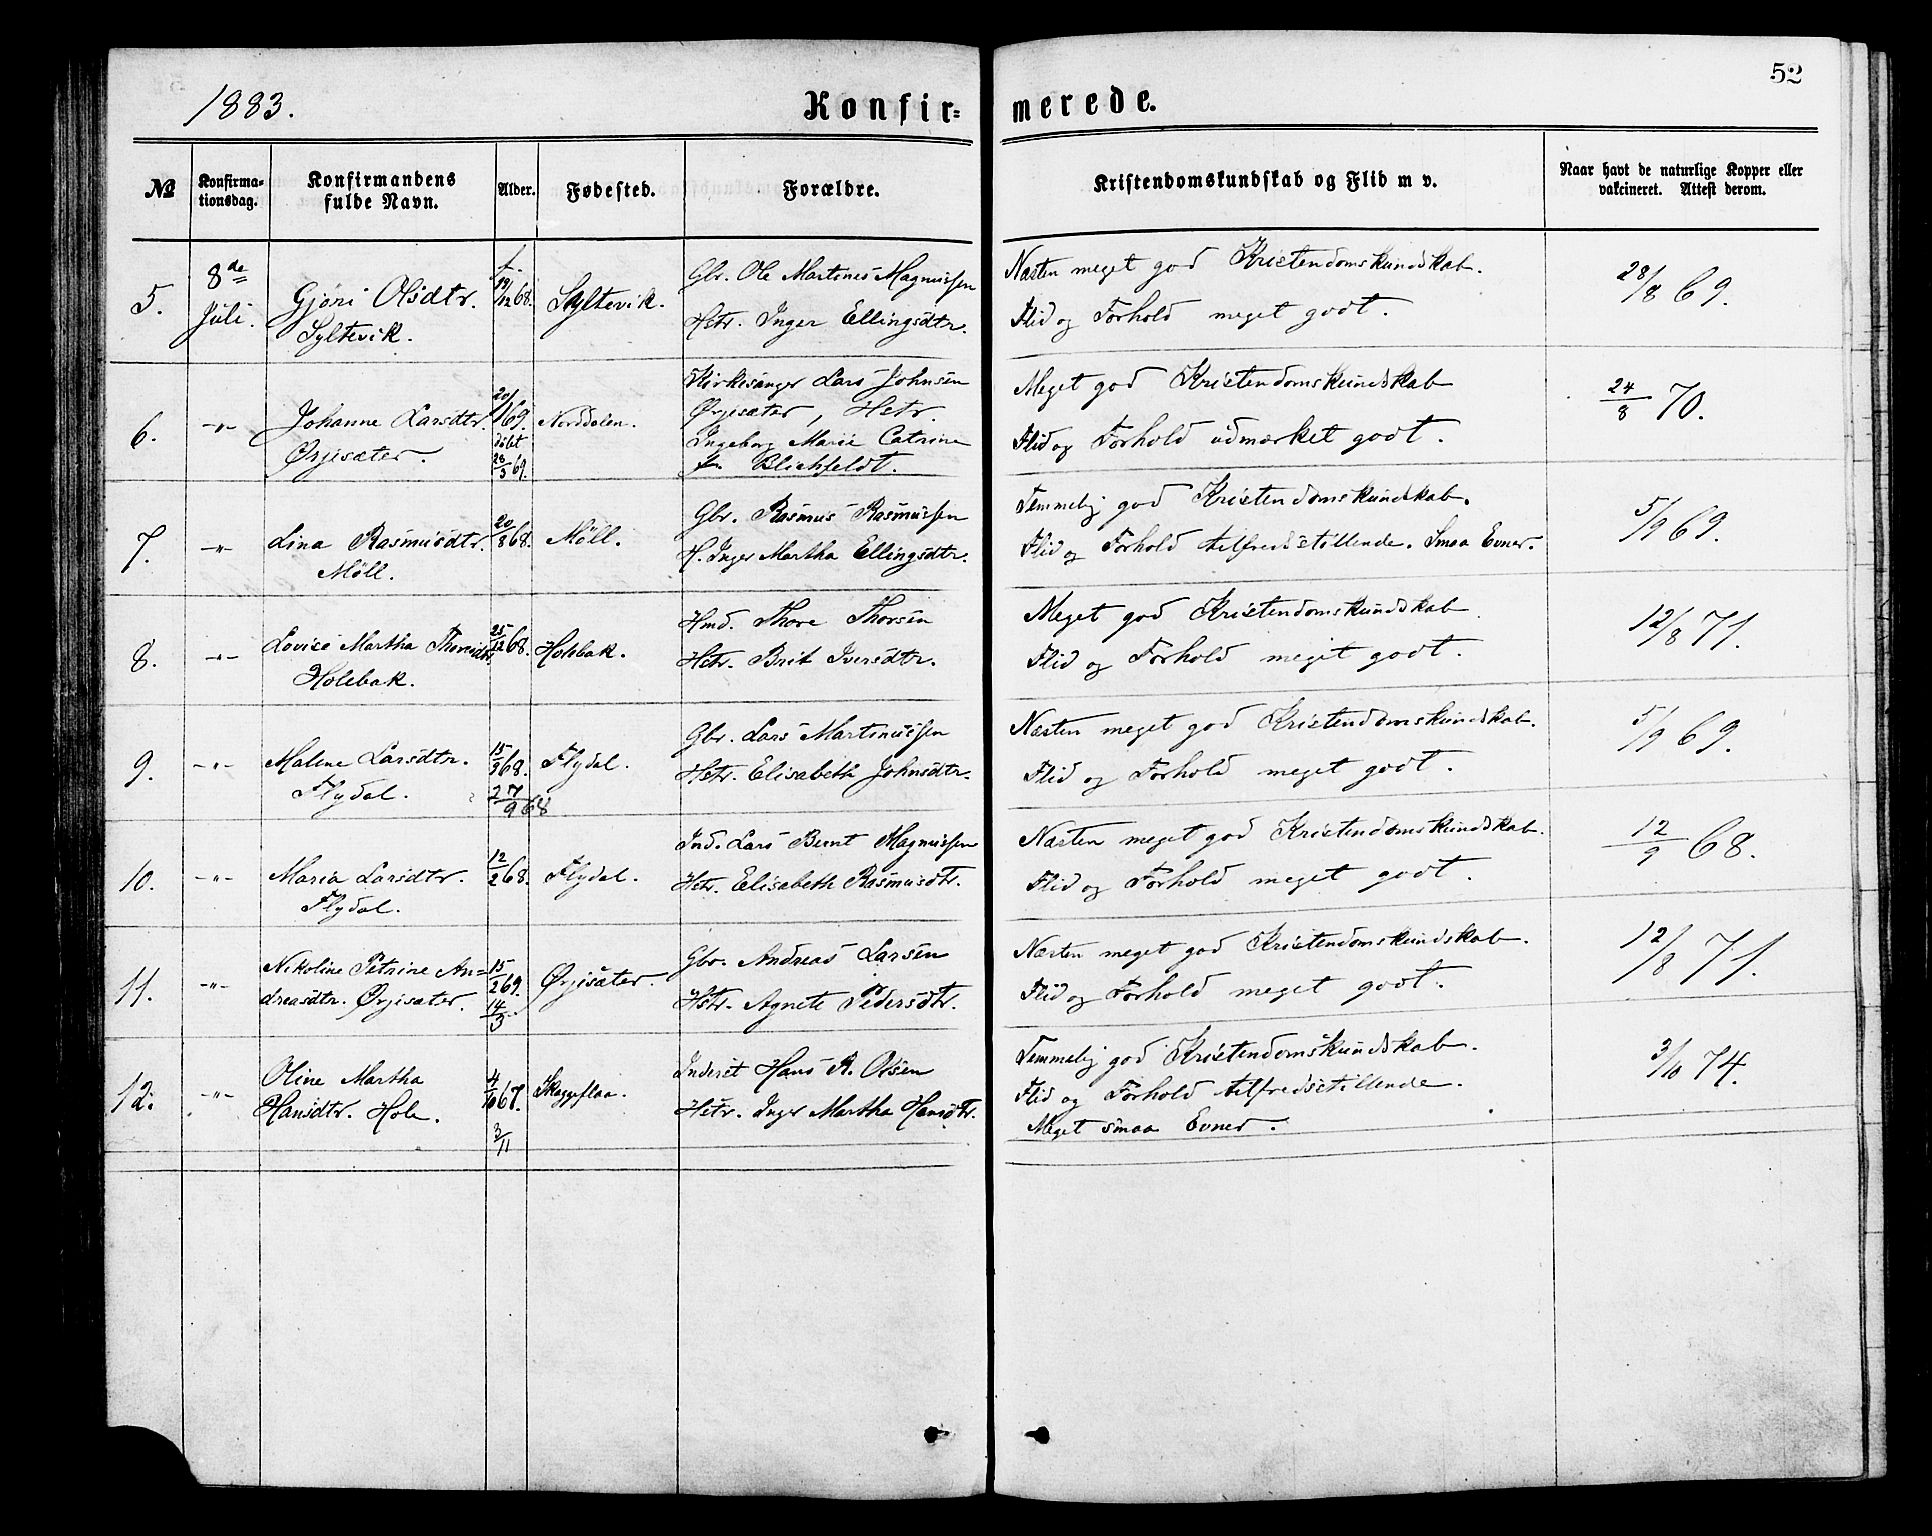 52
1883.
Konfir=
merede.
№
Konfirma=
tionsdag.
Konfirmandens
fulde Navn.
Alder.
Fødested.
Forældre.
Kristendomskundskab og Flid m v.
Naar havt de naturlige Kopper eller
vakcineret. Attest derom.
5.
8de
Juli.
Gjøri Olsdtr.
Syltevik.
f.
19/12 68.
Syltevik.
Gbr. Ole Martines Magnussen
Hstr. Inger Ellingsdtr.
Næsten meget god Kristendomskundskab.
Flid og Forhold meget godt.
28/8 69.
6.
-"-
Johanne Larsdtr.
Ørjesæter.
20/1 69.
døbt
28/3 69.
Norddalen.
Kirkesanger Lars Johnsen
Ørjesæter, Hstr.
Ingeborg Marie Catrine
f. Blichfeldt.
Meget god Kristendomskundskab
Flid og Forhold udmærket godt.
24/8 70.
7.
-"-
Lina Rasmusdtr.
Möll.
20/8 68.
Möll.
Gbr. Rasmus Rasmussen
H. Inger Martha Ellingsdtr.
Temmelig god Kristendomskundskab.
Flid og Forhold tilfredsstillende. Smaa Evner.
5/9 69.
8.
-"-
Lovise Martha Thoresdtr.
Holebak.
25/12 68.
Holebak.
Hmd. Thore Thorsen
Hstr. Brit Iversdtr.
Meget god Kristendomskundskab
Flid og Forhold meget godt.
12/8 71.
9.
-"-
Malene Larsdtr.
Flydal.
15/9 68.
27/9 68
Flydal.
Gbr. Lars Martinussen
Hstr. Elisabeth Johnsdtr.
Næsten meget god Kristendomskundskab.
Flid og Forhold meget godt.
5/9 69.
10.
-"-
Maria Larsdtr.
Flydal.
12/2 68.
Flydal.
Ind. Lars Bernt Magnussen
Hstr. Elisabeth Rasmusdtr.
Næsten meget god Kristendomskundskab.
Flid og Forhold meget godt.
12/9 68.
11.
-"-
Nikoline Petrine An=
dreasdtr. Ørjesæter.
15/2 69.
14/3
Ørjesæter.
Gbr. Andreas Larsen
Hstr. Agnete Pedersdtr.
Næsten meget god Kristendomskundskab.
Flid og Forhold meget godt.
12/8 71.
12.
-"-
Oline Martha
Hansdtr. Hole.
4/10 67.
3/11
Skageflaa.
Inderst Hans R. Olsen
Hstr. Inger Martha Hansdtr.
Temmelig god Kristendomskundskab.
Flid og Forhold tilfredsstillende.
Meget smaa Evner.
3/10 74.